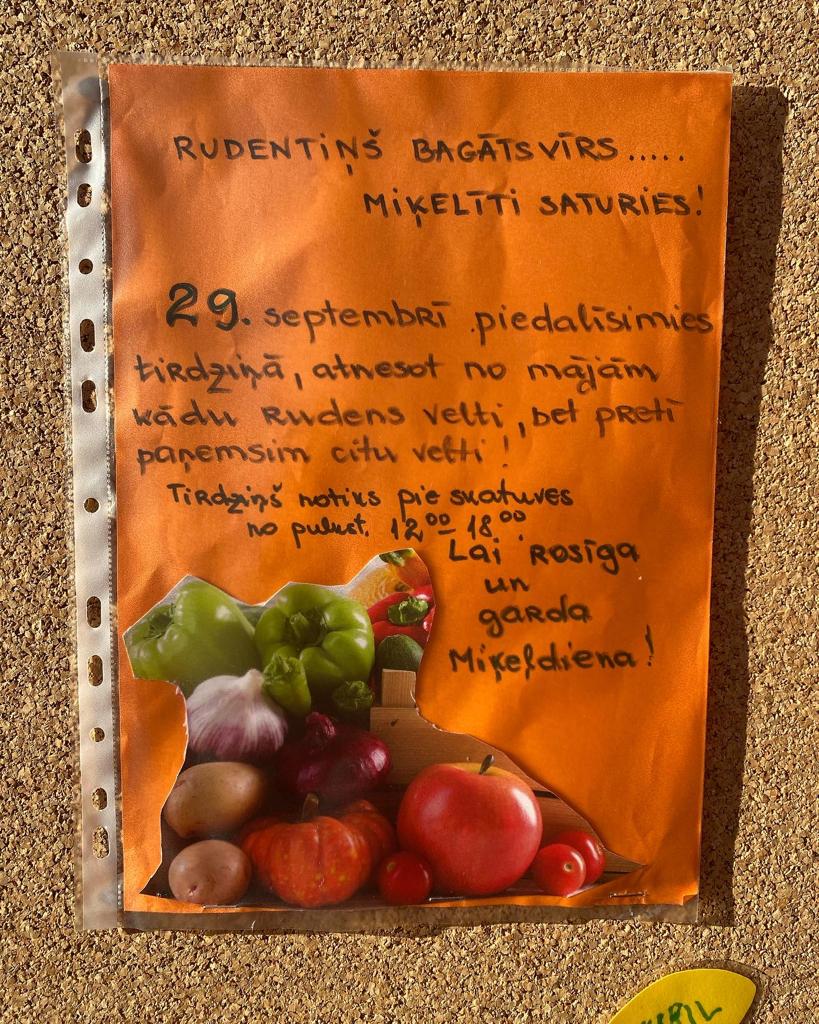 RUDENTIŅŠ BAGĀTS VĪRS.....
MIĶELĪTI SATURIES!
29. septembrī piedalīsimies
tirdziņā, atnesot no mājām
kādu Rudens velti, bet pretī
paņemsim citu velti!
Tirdziņš notiks pie skatuves
no pulkst. 12⁰⁰ - 18⁰⁰.
Lai rosīga
un
garda
Miķeļdiena!